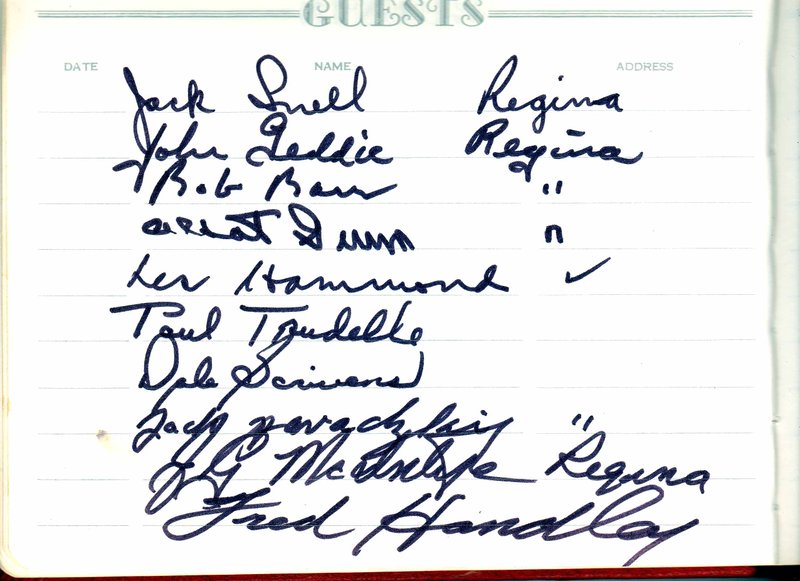 GUESTS
DATE NAME ADDRESS
Jack Snell Regina
John Geddie Regina
Bob Barr "
Dunn "
Les Hammond ✓
Paul Trudelle
Dale Scrivens
Jack "
J G McIntyre Regina
Fred Handley